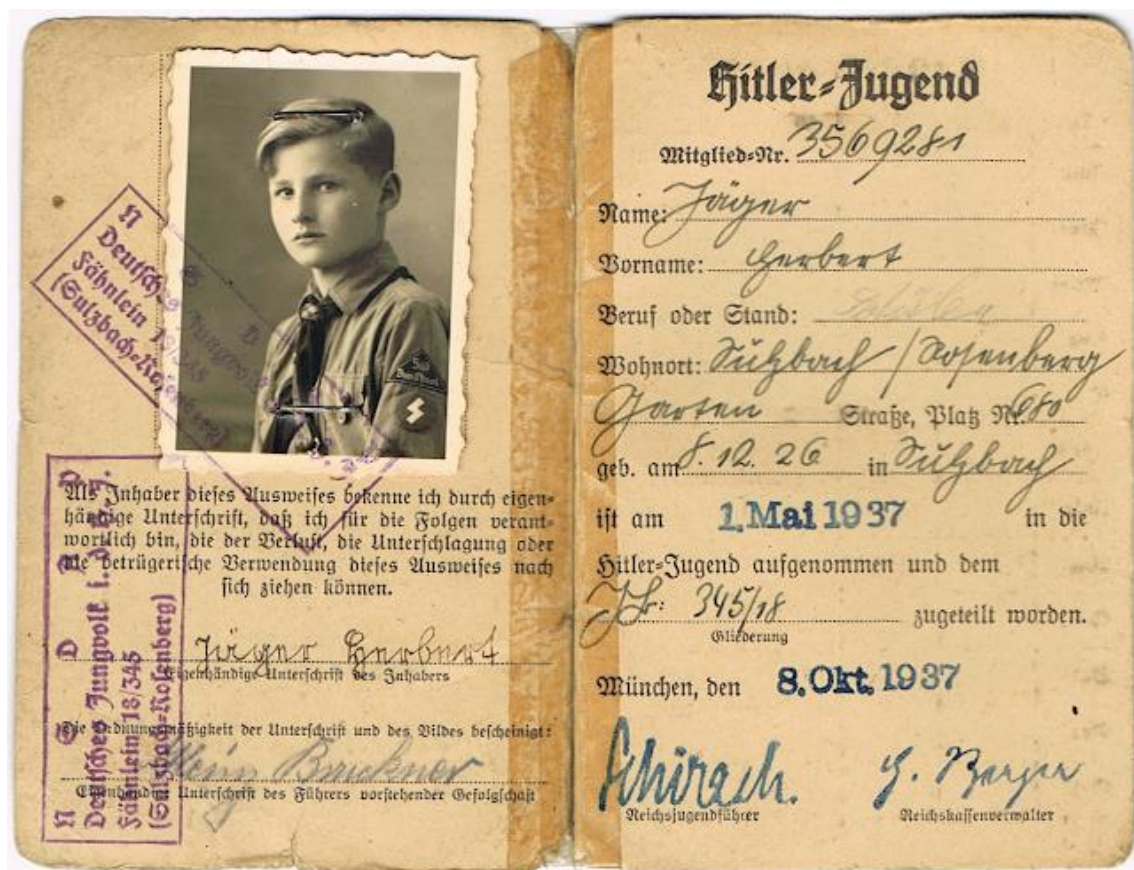 N S D A P
Deutsches Jungvolk
Fähnlein 18/345
(Sulzbach-Rosenberg)
Als Inhaber dieses Ausweises bekenne ich durch eigen-
händige Unterschrift, daß ich für die Folgen verant-
wortlich bin, die der Verlust, die Unterschlagung oder
die betrügerische Verwendung dieses Ausweises nach
sich ziehen können.
Jäger Herbert
Eigenhändige Unterschrift des Inhabers
Die Ordnungsmäßigkeit der Unterschrift und des Bildes bescheinigt:
Eigenhändige Unterschrift des Führers vorstehender Gefolgschaft
N S D A P
Deutsches Jungvolk i. d. H.J.
Fähnlein 18/345
(Sulzbach-Rosenberg)
Hitler-Jugend
Mitglied-Nr. 3569281
Name: Jäger
Vorname: Herbert
Beruf oder Stand: Schüler
Wohnort: Sulzbach/Rosenberg
Garten Straße, Platz Nr. 680
geb. am 8. 12. 26 in Sulzbach
ist am 1. Mai 1937 in die
Hitler-Jugend aufgenommen und dem
345/18 zugeteilt worden.
Gliederung
München, den 8. Okt. 1937
Schirach.
Reichsjugendführer Reichskassenverwalter